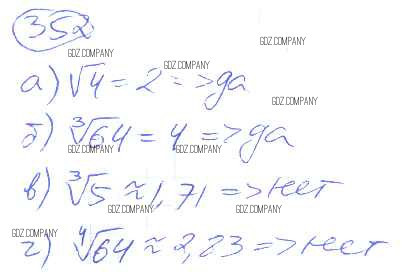 352
GDZ.COMPANY
GDZ.COMPANY
GDZ.COMPANY
а) √4 = 2 => да
GDZ.COMPANY
б) ∛64 = 4 => да
GDZ.COMPANY GDZ.COMPANY
в) ∛5 ≈ 1,71 => нет
GDZ.COMPANY GDZ.COMPANY
GDZ.COMPANY
г) ∜64 ≈ 2,23 => нет